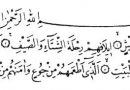 اللَّهِ الرَّحْمَٰنِ
إِيلَافِهِمْ رِحْلَةَ الشِّتَاءِ وَالصَّيْفِ
الَّذِي أَطْعَمَهُم مِّن جُوعٍ وَآمَنَهُم مِّنْ